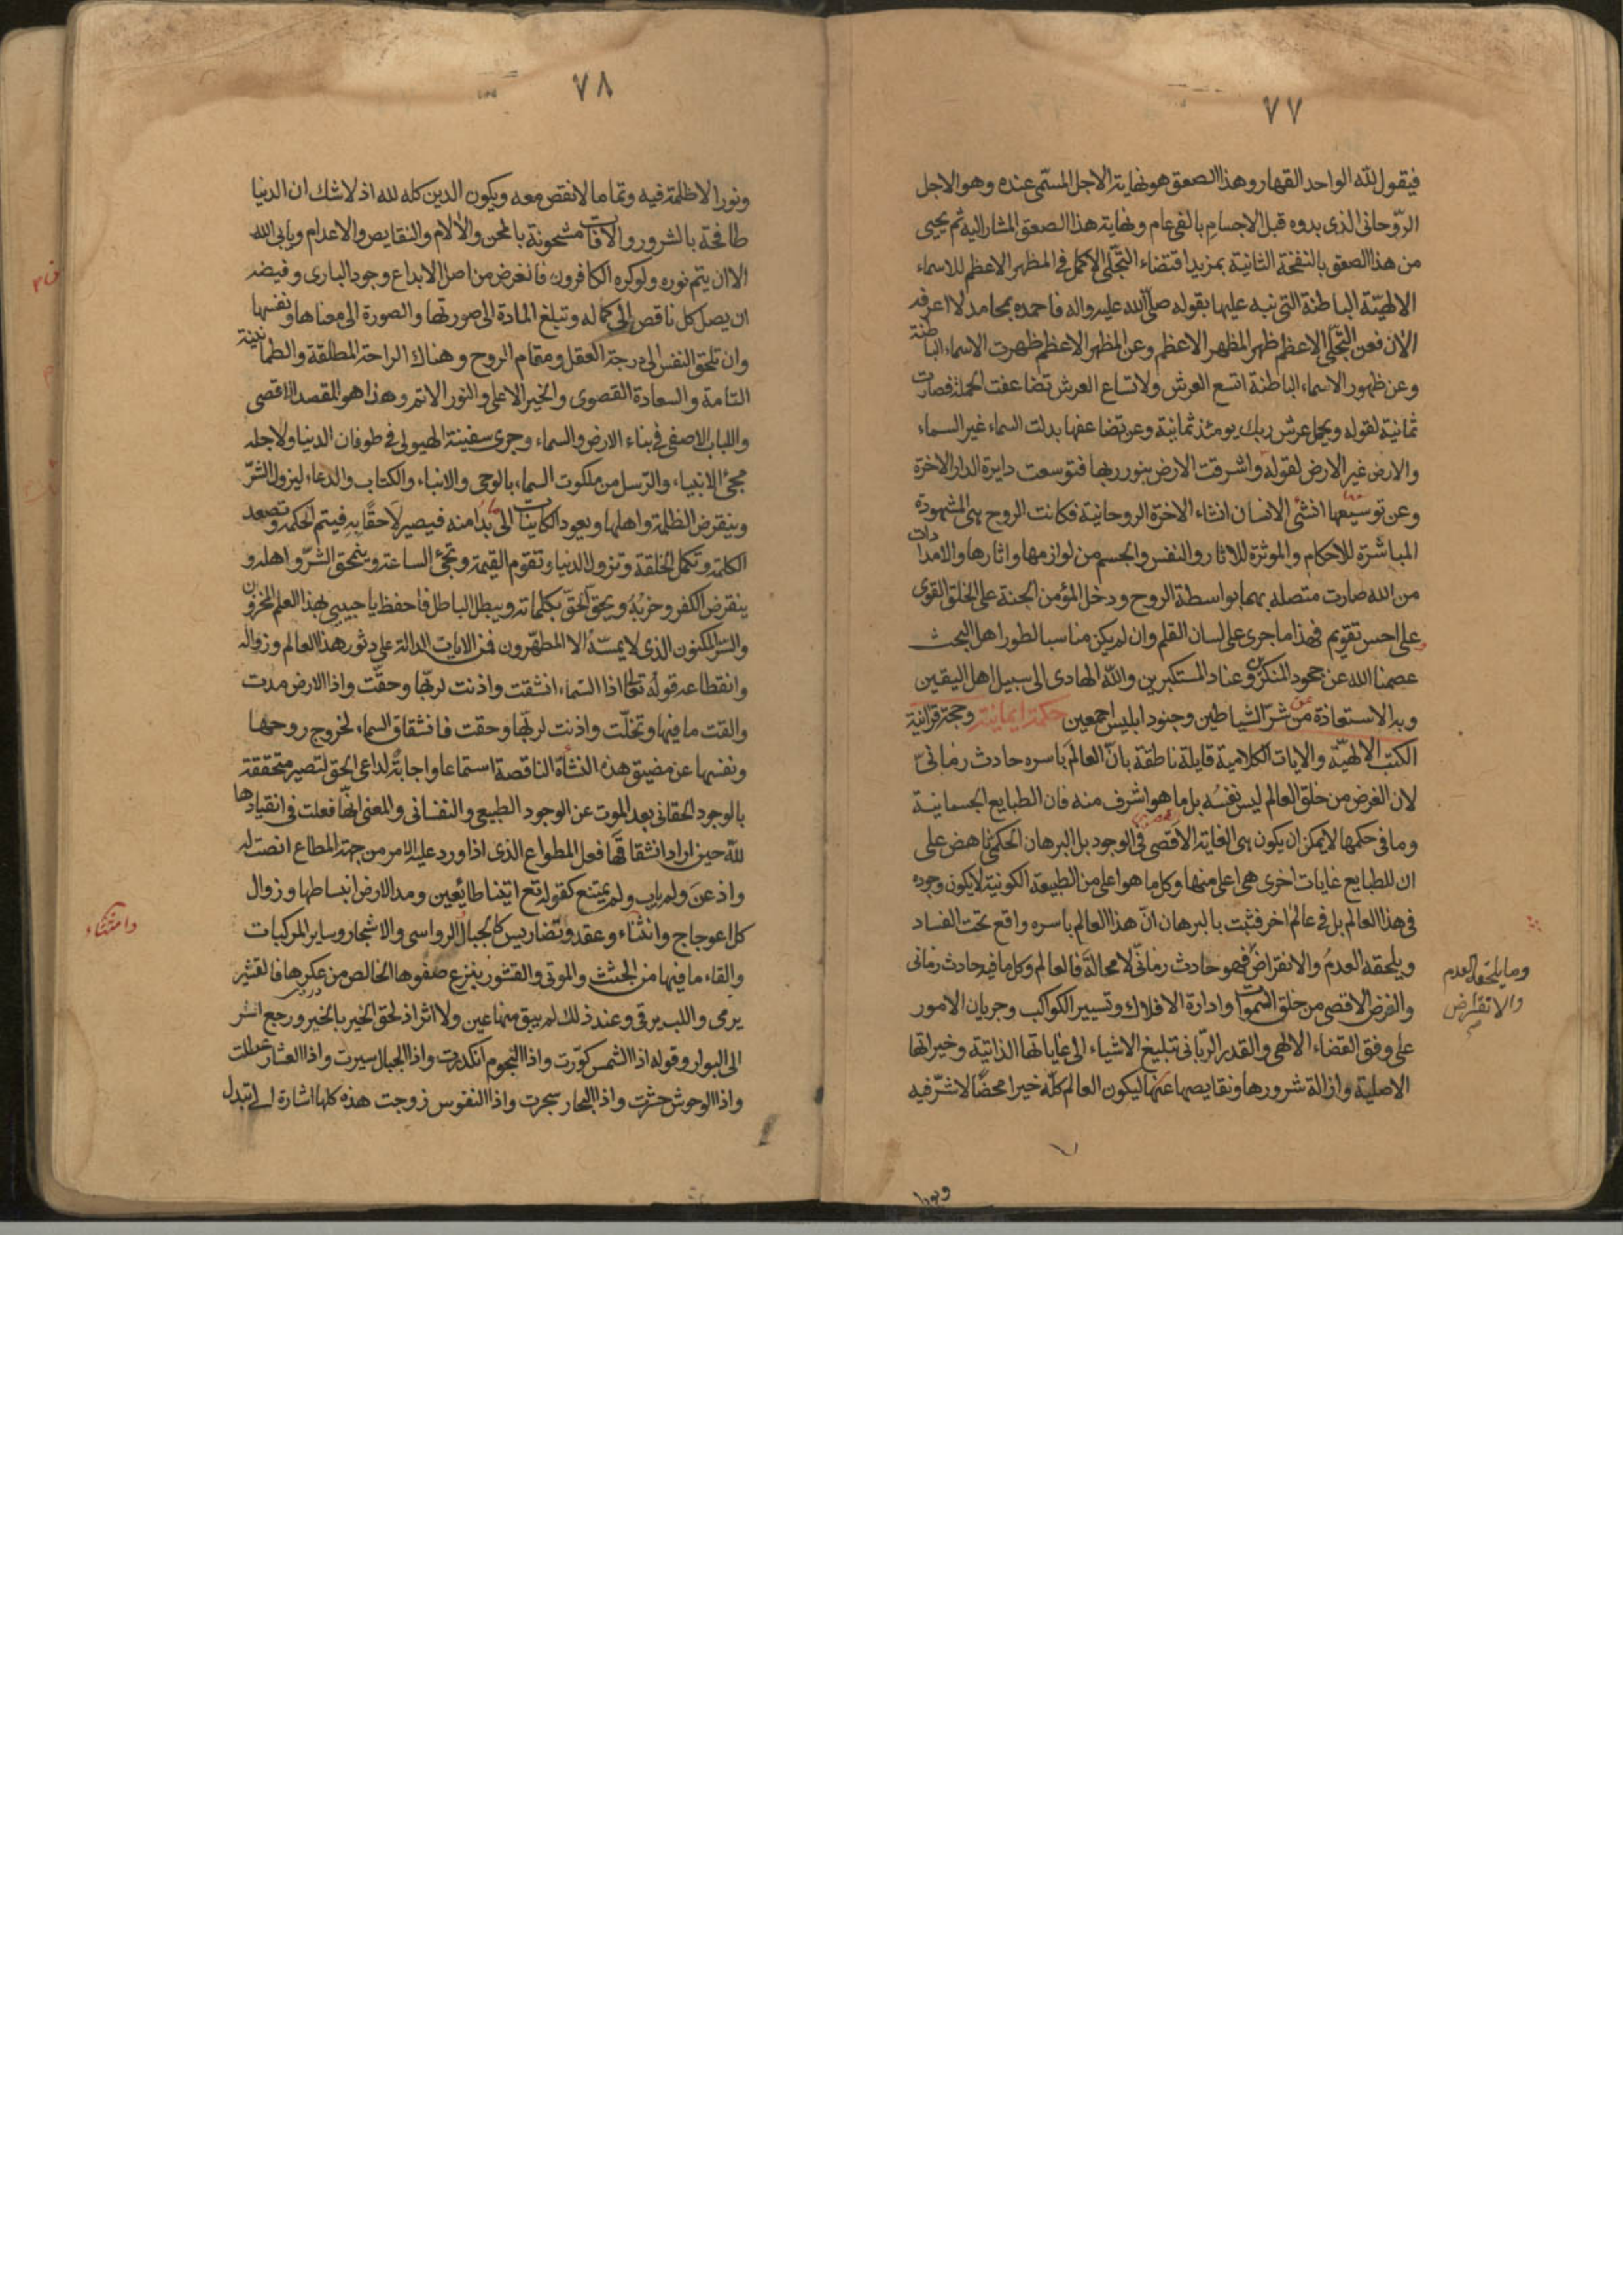 ٧٧
فيقول لله الواحد القهار وهذا الصعق هو نهاية الاجل المسمّى عنده وهو الاجل
الرّوحانى الذى بدوه قبل الاجسام بالفى عام ونهاية هذا الصعق المشار اليه ثم يحيى
من هذا الصعق بالنفخة الثانية بمزيد اقتضاء التجلّى الاكمل فى المظهر الاعظم للاسماء
الالهيّة الباطنة التى نبه عليها بقوله صلّى الله عليه واله فاحمده بمحامد لا اعرفه
الآن فعن التجلّى الاعظم ظهر المظهر الاعظم وعن المظهر الاعظم ظهرت الاسماء الباطنة
وعن ظهور الاسماء الباطنة اتسع العرش ولاتساع العرش تضاعفت الحملة فصارت
ثمانية لقوله ويحمل عرش ربك يومئذ ثمانية وعن تضاعفها بدلت السماء غير السماء
والارض غير الارض لقوله واشرقت الارض بنور ربها فتوسعت دايرة الدار الاخرة
وعن توسيعها انشئ الانسان انشاء الاخرة الروحانية فكانت الروح هى المشهودة
المباشرة للاحكام والموثرة للاثار والنفس والجسم من لوازمها واثارها والامدادات
من الله صارت متصله بهما بواسطة الروح ودخل المؤمن الجنة على الخلق القوى
وعلى احسن تقويم فهذا ما جرى على لسان القلم وان لم يكن مناسبا لطور اهل البحث
عصمنا الله عن جحود المنكرين وعناد المستكبرين والله الهادى الى سبيل اهل اليقين
وبه الاستعاذة من شر الشياطين وجنود ابليس اجمعين حكمة ايمانية وحجة قرانية
الكتب الالهيّة والايات الكلامية قايلة ناطقة بان العالم باسره حادث زمانىّ
لان الغرض من خلق العالم ليس نفسه بل ما هو اشرف منه فان الطبايع الجسمانية
وما فى حكمها لا يمكن ان يكون هى الغاية الاقصى فى الوجود بل البرهان الحكمى ناهض على
ان للطبايع غايات اخرى هى اعلى منها وكل ما هو اعلى من الطبيعة الكونية لا يكون وجوده
فى هذا العالم بل فى عالم اخر فثبت بالبرهان انّ هذا العالم باسره واقع تحت الفساد
ويلحقه العدم والانقراض فهو حادث زمانىّ لا محالة فالعالم وكل ما فيه حادث زمانى
وما يلحقه العدم
والانقراض
والغرض الاقصى من خلق السموات وادارة الافلاك وتسيير الكواكب وجريان الامور
على وفق القضاء الالهى والقدر الربّانى تبليغ الاشياء الى غاياتها الذاتية وخيراتها
الاصلية وازالة شرورها ونقايصها عنها ليكون العالم كلّه خيرا محضًا لا شرّ فيه
ونورا
٧٨
ونورا لا ظلمة فيه وتماما لا نقص معه ويكون الدين كله لله اذ لا شك ان الدنيا
طافحة بالشرور والافات مشحونة بالمحن والالام والنقايص والاعدام ويابى الله
الا ان يتم نوره ولو كره الكافرون فالغرض من اصل الابداع وجود البارى وفيضه
ان يصل كل ناقص الى كماله وتبلغ المادة الى صورتها والصورة الى معناها ونفسها
وان تلحق النفس الى درجة العقل ومقام الروح وهناك الراحة المطلقة والطمانينة
التامة والسعادة القصوى والخير الاعلى والنور الاتم وهذا هو المقصد الاقصى
واللباب الاصفى فى بناء الارض والسماء وجرى سفينة الهيولى فى طوفان الدنيا ولاجله
مجئ الانبياء والرّسل من ملكوت السماء بالوحى والانباء والكتاب والدعاء ليزول الشرّ
وينقرض الظلمة واهلها ويعود الكاينات الى ما بدا منه فيصير لاحقًا به فيتم الحكمة وتصعد
الكلمة وتكمل الخلقة وتزول الدنيا وتقوم القيمة وتجئ الساعة وينمحق الشرّ واهله و
ينقرض الكفر وحزبُه ويحق الحقّ بكلماته ويبطل الباطل فاحفظ يا حبيبى بهذا العلم المخزون
والسّر المكنون الذى لا يمسّه الا المطهّرون فمن الايات الدالة على دثور هذا العالم وزواله
وانقطاعه قوله تعالى اذا السّماء انشقت واذنت لربّها وحقّت واذا الارض مدت
والقت ما فيها وتخلّت واذنت لربّها وحقت فانشقاق السماء لخروج روحها
ونفسها عن مضيق هذه النشأة الناقصة استماعا واجابةً لداعى الحق لتصير متحققة
بالوجود الحقانى بعد الموت عن الوجود الطبيعى والنفسانى والمعنى انّها فعلت فى انقيادها
للّه حين اراد انشقاقها فعل المطواع الذى اذا ورد عليه الامر من جهة المطاع انصت له
واذعنَ ولم ياب ولم يمتنع كقوله تع اتينا طائعين ومد الارض انبساطها وزوال
كل اعوجاج وانثناء وعقد وتضاريس كالجبال الرواسى والاشجار وساير المركبات
والقاء ما فيها من الجثث والموتى والقشور ينزع صفوها الخالص من عكرها فالقشر
يرمى واللب يرقى وعند ذلك لم يبق منها عين ولا اثر اذ لحق الخير بالخير ورجع الشر
الى البوار وقوله اذا الشمس كوّرت واذا النجوم انكدرت واذا الجبال سيرت واذا العشار عطلت
واذا الوحوش حشرت واذا البحار سجرت واذا النفوس زوجت هذه كلها اشارة الى تبدل